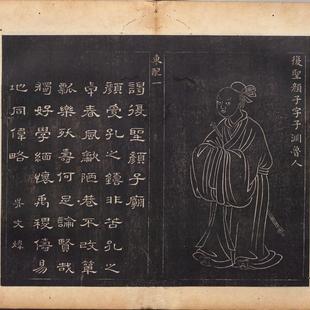 復聖顏子字子淵魯人
東配一
謁復聖顏子廟
顏受孔之鑄非苦孔之
卓春風陋巷不改簞
瓢樂殀壽何足論賢哉
獨好學緬懷禹稷儔易
地同偉略 文